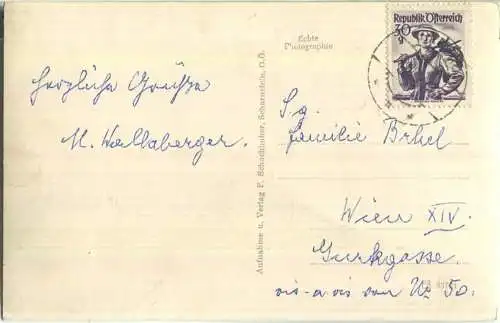 Republik Österreich
30
g
Echte
Photographie
Herzliche Grüsse
M. Wallaberger.
Aufnahme u. Verlag F. Schachinger, Scharnstein, O.Ö.
Sg.
Familie Brkel
Wien XIV.
Gurkgasse.
vis-a-vis von No 50.